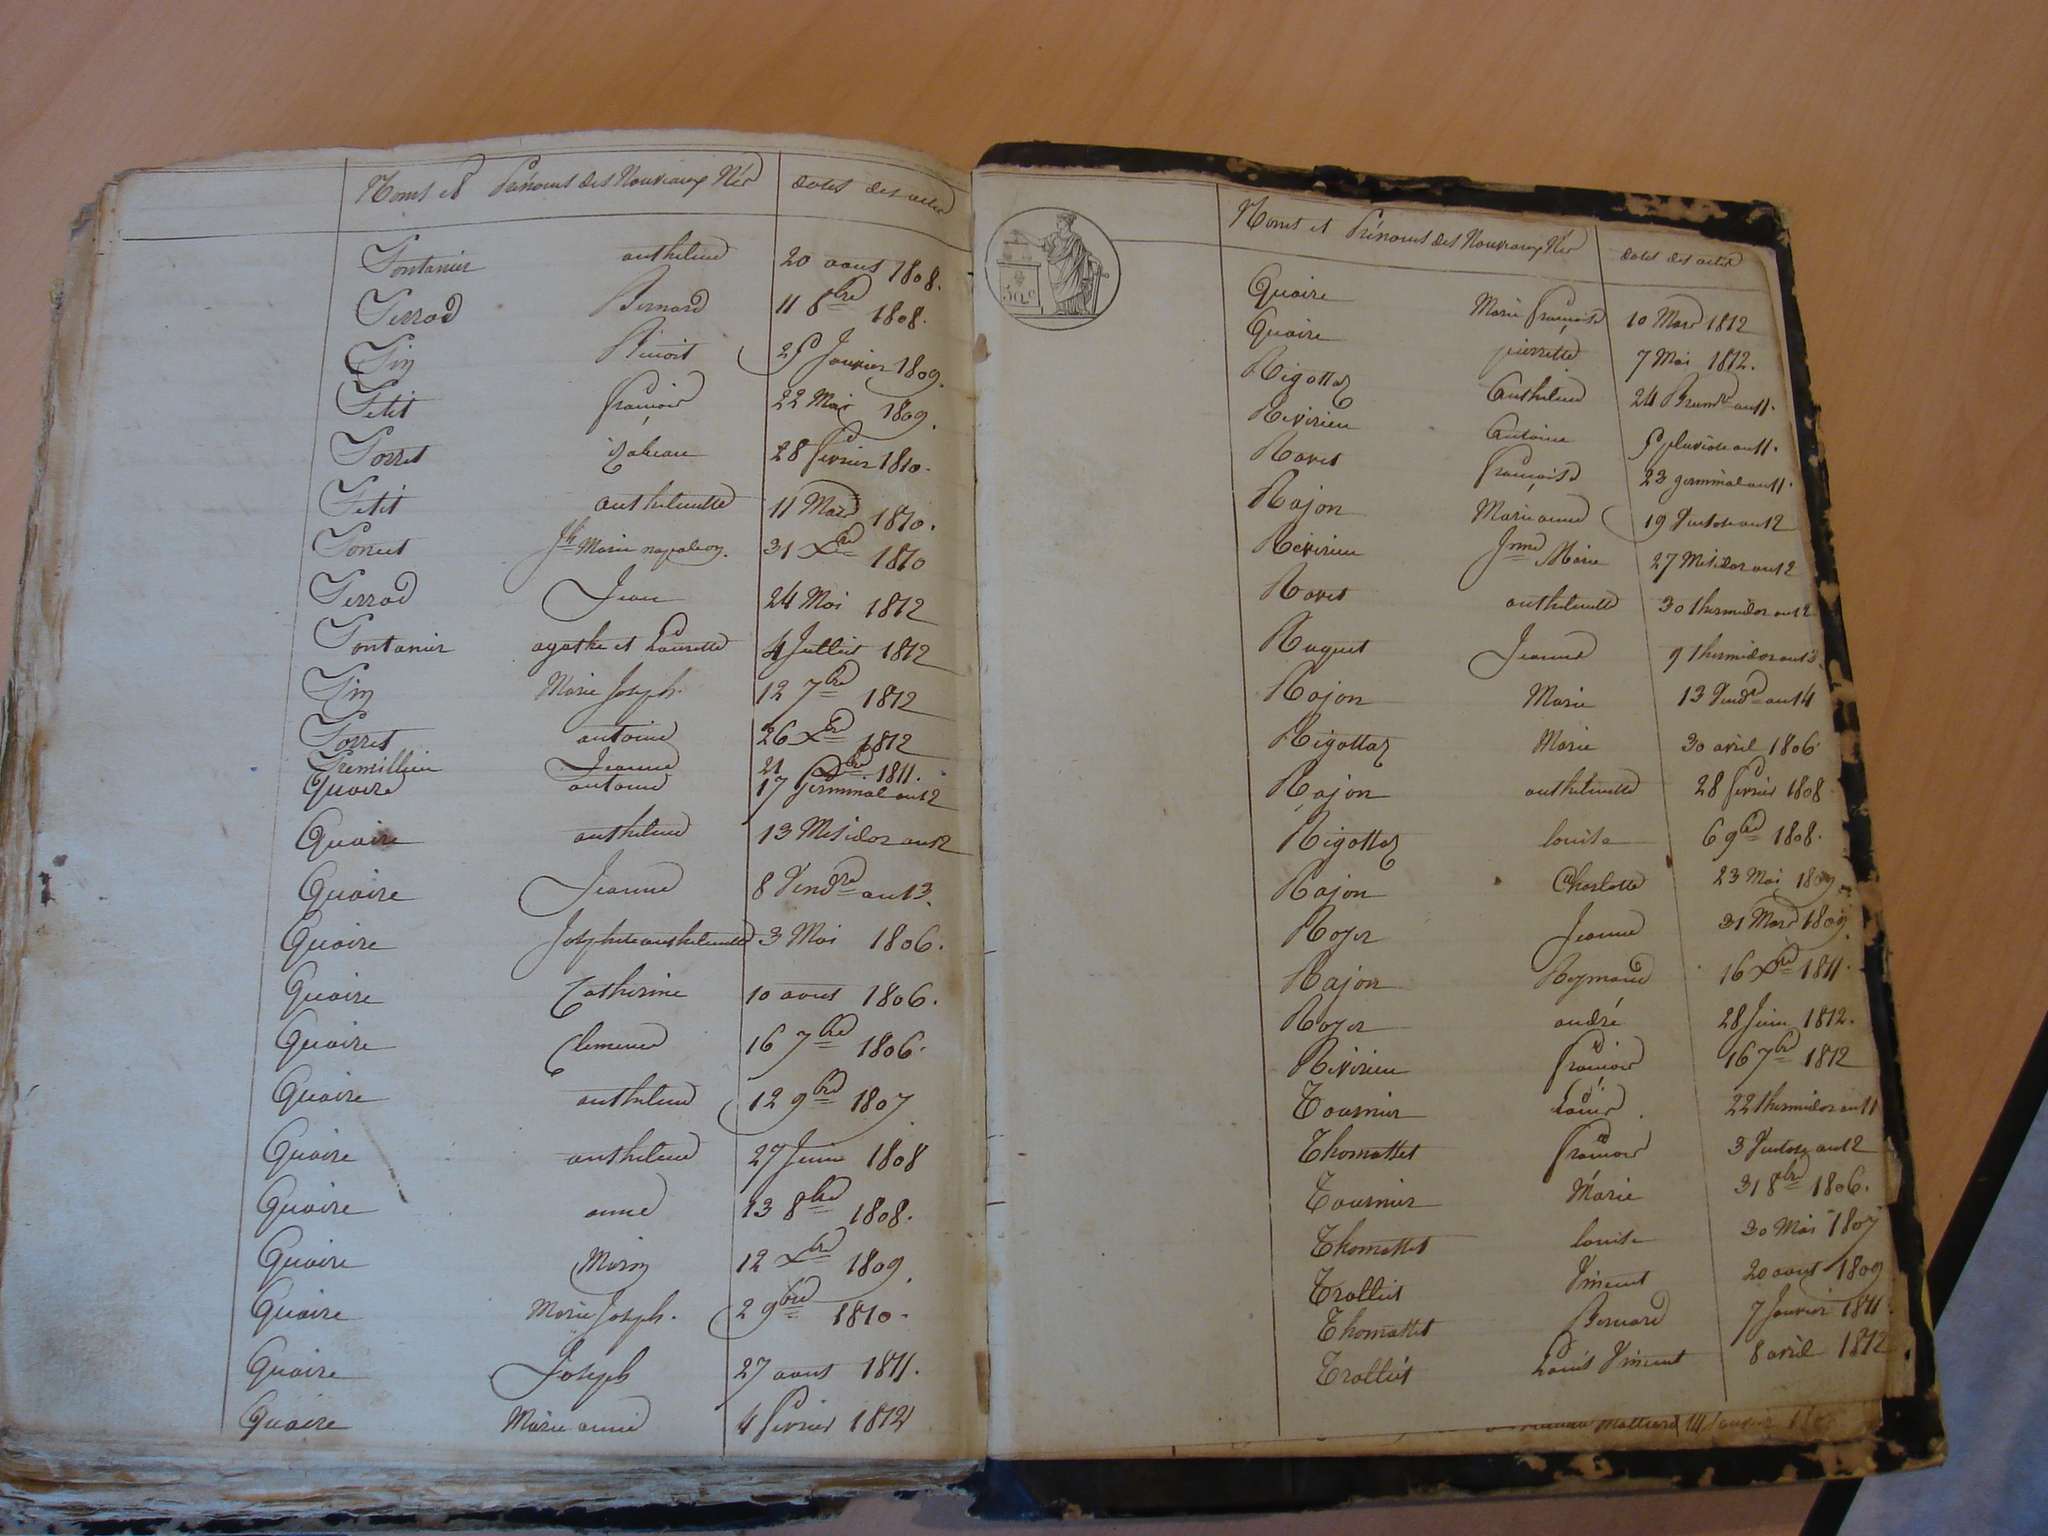 Noms et Prénoms des Nouveaux Nés dates des actes
Pontanier anthelme 20 aout 1808.
Perrod Bernard 11 8bre 1808.
Pin Benoit 25 Janvier 1809.
Petit françois 22 Mai 1809.
Porret izabeau 28 fevrier 1810.
Petit anthelmette 11 Mars 1810.
Poncet Jh Marie napoleon. 31 Xbre 1810
Perrod Jean 24 Mai 1812
Pontanier agathe et Laurette 4 Juillet 1812
Pin Marie Joseph. 12 7bre 1812
Porret antoine 26 Xbre 1812
Premillieu Jeanne 21 1811.
Quaire antoine 17 Germinal an 12
Quaire anthelme 13 Mesidor an 12
Quaire Jeanne 8 Vendre an 13.
Quaire Josephe anthelmette 3 Mai 1806.
Quaire Catherine 10 aout 1806.
Quaire Clemence 16 7bre 1806.
Quaire anthelme 12 9bre 1807
Quaire anthelme 27 Juin 1808
Quaire anne 13 8bre 1808.
Quaire Mirin 12 Xbre 1809.
Quaire Marie Joseph. 2 9bre 1810.
Quaire Joseph 27 aout 1811.
Quaire Marie anne 4 fevrier 1812
50 c
Noms et Prénoms des Nouveaux Nés dates des actes
Quaire Marie françoise 10 Mars 1812
Quaire pierrette 7 Mai 1812.
Rigottaz Anthelme 24 Brumre an 11.
Revirieu Antoine 5 pluviose an 11.
Ravet françoise 23 germinal an 11.
Rajon Marie anne 19 Ventose an 12
Revirieu Jnne Marie 27 Mesidor an 12
Ravet anthelmette 30 thermidor an 12
Ruguet Jeanne 9 thermidor an 13.
Rajon Marie 13 Vendre an 14
Rigottaz Marie 30 avril 1806
Rajon anthelmette 28 fevrier 1808
Rigottaz louise 6 9bre 1808.
Rajon Charlotte 23 Mai 1809.
Royer Jeanne 31 Mars 1809.
Rajon Reymond 16 Xbre 1811.
Royer andré 28 Juin 1812.
Revirieu françois 16 7bre 1812
Tournier Louis. 22 thermidor an 11
Thomattet françois 3 Ventose an 12
Tournier Marie 31 8bre 1806.
Thomattet louise 30 Mai 1807
Trolliet Vincent 20 aout 1809
Thomattet Bernard 7 Janvier 1811.
Trolliet Louis Vincent 8 avril 1812
14 Janvier